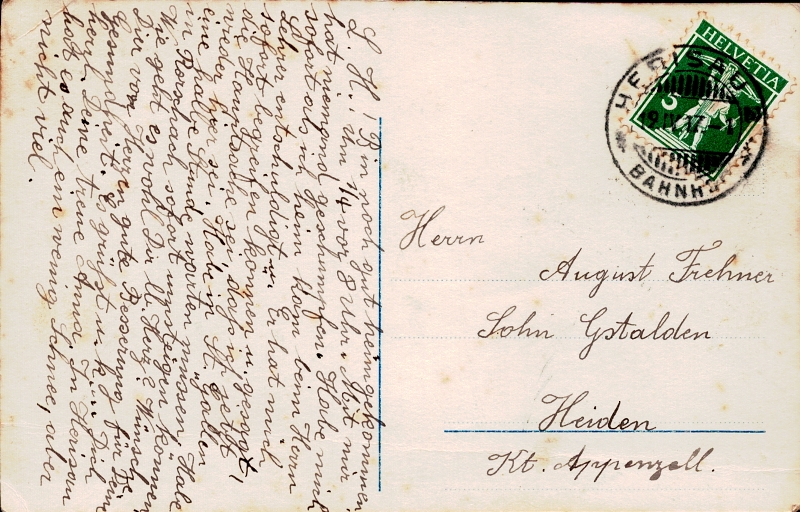 L. H.! Bin noch gut heimgekommen,
hat niemand geschumpfen. Habe mich
um 1/4 vor 8 Uhr. Mit mir
sofort als ich heim kam beim Herrn
Lehrer entschuldigt u. Er hat mich
sofort begreifen können u. gesagt,
die Hauptsache sei, dass ich jetzt
wieder hier sei. Hab in St. Gallen
eine halbe Stunde warten müssen. Habe
in Rorschach sofort umsteigen können.
Wie geht es wohl Dir ll. Herz? Wünsche
Dir von Herzen gute Besserung für Deine
Gesundheit. Es grüsst u. k. Dich
herzl. Deine treue Anna. In Herisau
hat es auch ein wenig Schnee, aber
nicht viel.
HELVETIA
5
HERISAU
12.IV.17.-1
BAHNHOF
Herrn
August Frehner
Sohn Gstalden
Heiden
Kt. Appenzell.